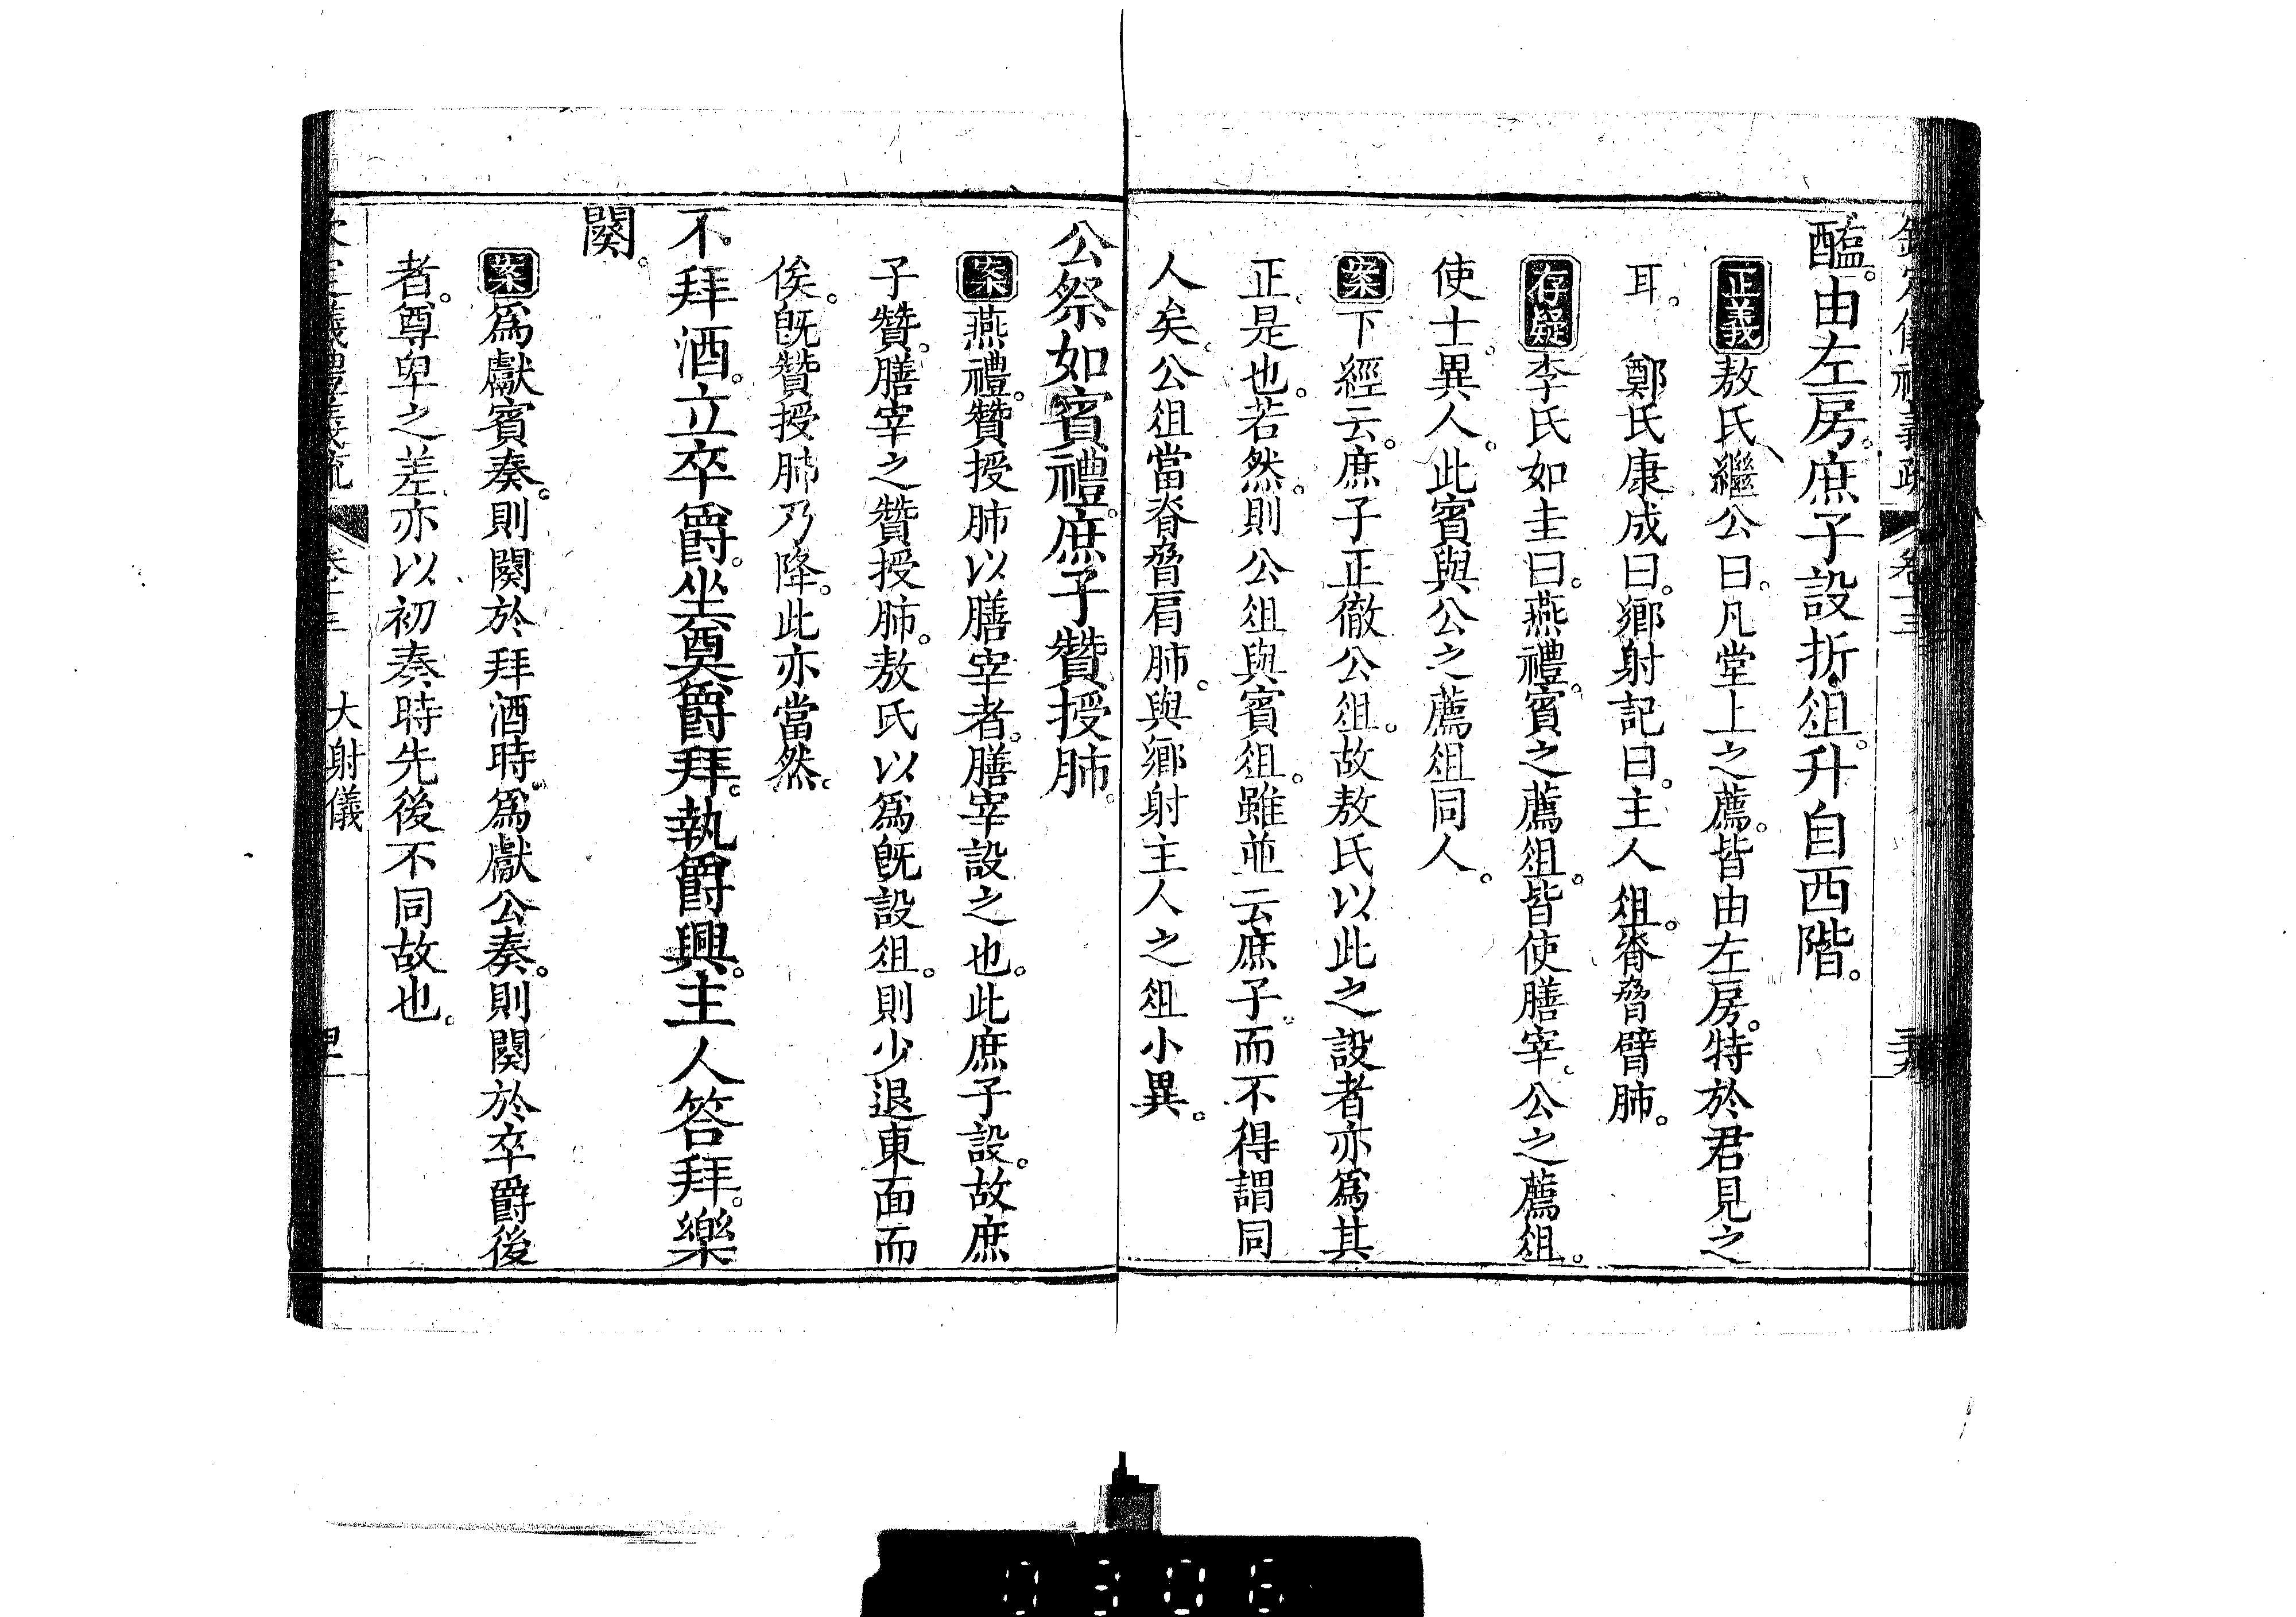 醢。由左房。庶子設折俎。升自西階。
正義敖氏繼公曰。凡堂上之薦。皆由左房。特於君見之
耳。 鄭氏康成曰。鄉射記曰。主人俎。脊脅臂肺。
存疑李氏如圭曰。燕禮。賓之薦俎。皆使膳宰。公之薦俎。
使士。異人。此賓與公之薦俎同人。
案下經云。庶子正徹公俎。故敖氏以此之設者亦爲其
正。是也。若然。則公俎與賓俎。雖並云庶子。而不得謂同
人矣。公俎當脊脅肩肺。與鄉射主人之俎小異。
公祭如賓禮。庶子贊授肺。
案燕禮。贊授肺以膳宰者。膳宰設之也。此庶子設。故庶
子贊。膳宰之贊授肺。敖氏以爲旣設俎。則少退東面而
俟。旣贊授肺乃降。此亦當然。
不拜酒。立卒爵。坐奠爵拜。執爵興。主人答拜。樂
闋。
案爲獻賓奏。則闋於拜酒時。爲獻公奏。則闋於卒爵後
者。尊卑之差。亦以初奏時先後不同故也。
大射儀
0306